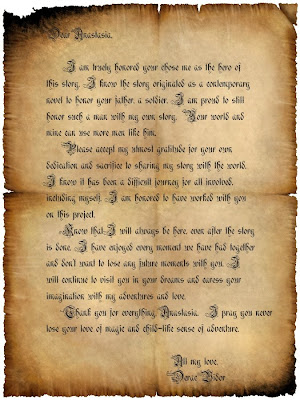 Dear Anastasia,
I am truely honored your chose me as the hero of
this story. I know the story originated as a contemporary
novel to honor your father, a soldier. I am proud to still
honor such a man with my own story. Your world and
mine can use more men like him.
Please accept my utmost gratitude for your own
dedication and sacrifice to sharing my story with the world.
I know it has been a difficult journey for all involved,
including myself. I am honored to have worked with you
on this project.
Know that I will always be here, even after the story
is done. I have enjoyed every moment we have had together
and don't want to lose any future moments with you. I
will continue to visit you in your dreams and caress your
imagination with my adventures and love.
Thank you for everything, Anastasia. I pray you never
lose your love of magic and child-like sense of adventure.
All my love,